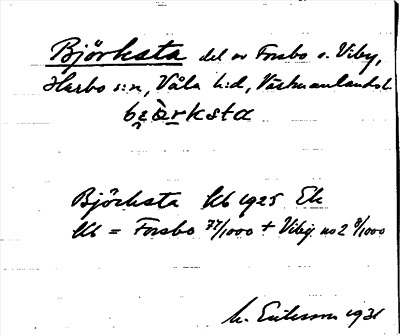 Björksta del av Forsbo o. Viby,
Harbo s:n, Våla h:d, Västmanlands l.
be̥àrksta
Björksta kb 1925 Ek
kb = Forsbo 77/1000 + Viby no 2 8/1000
M. Eriksson 1931